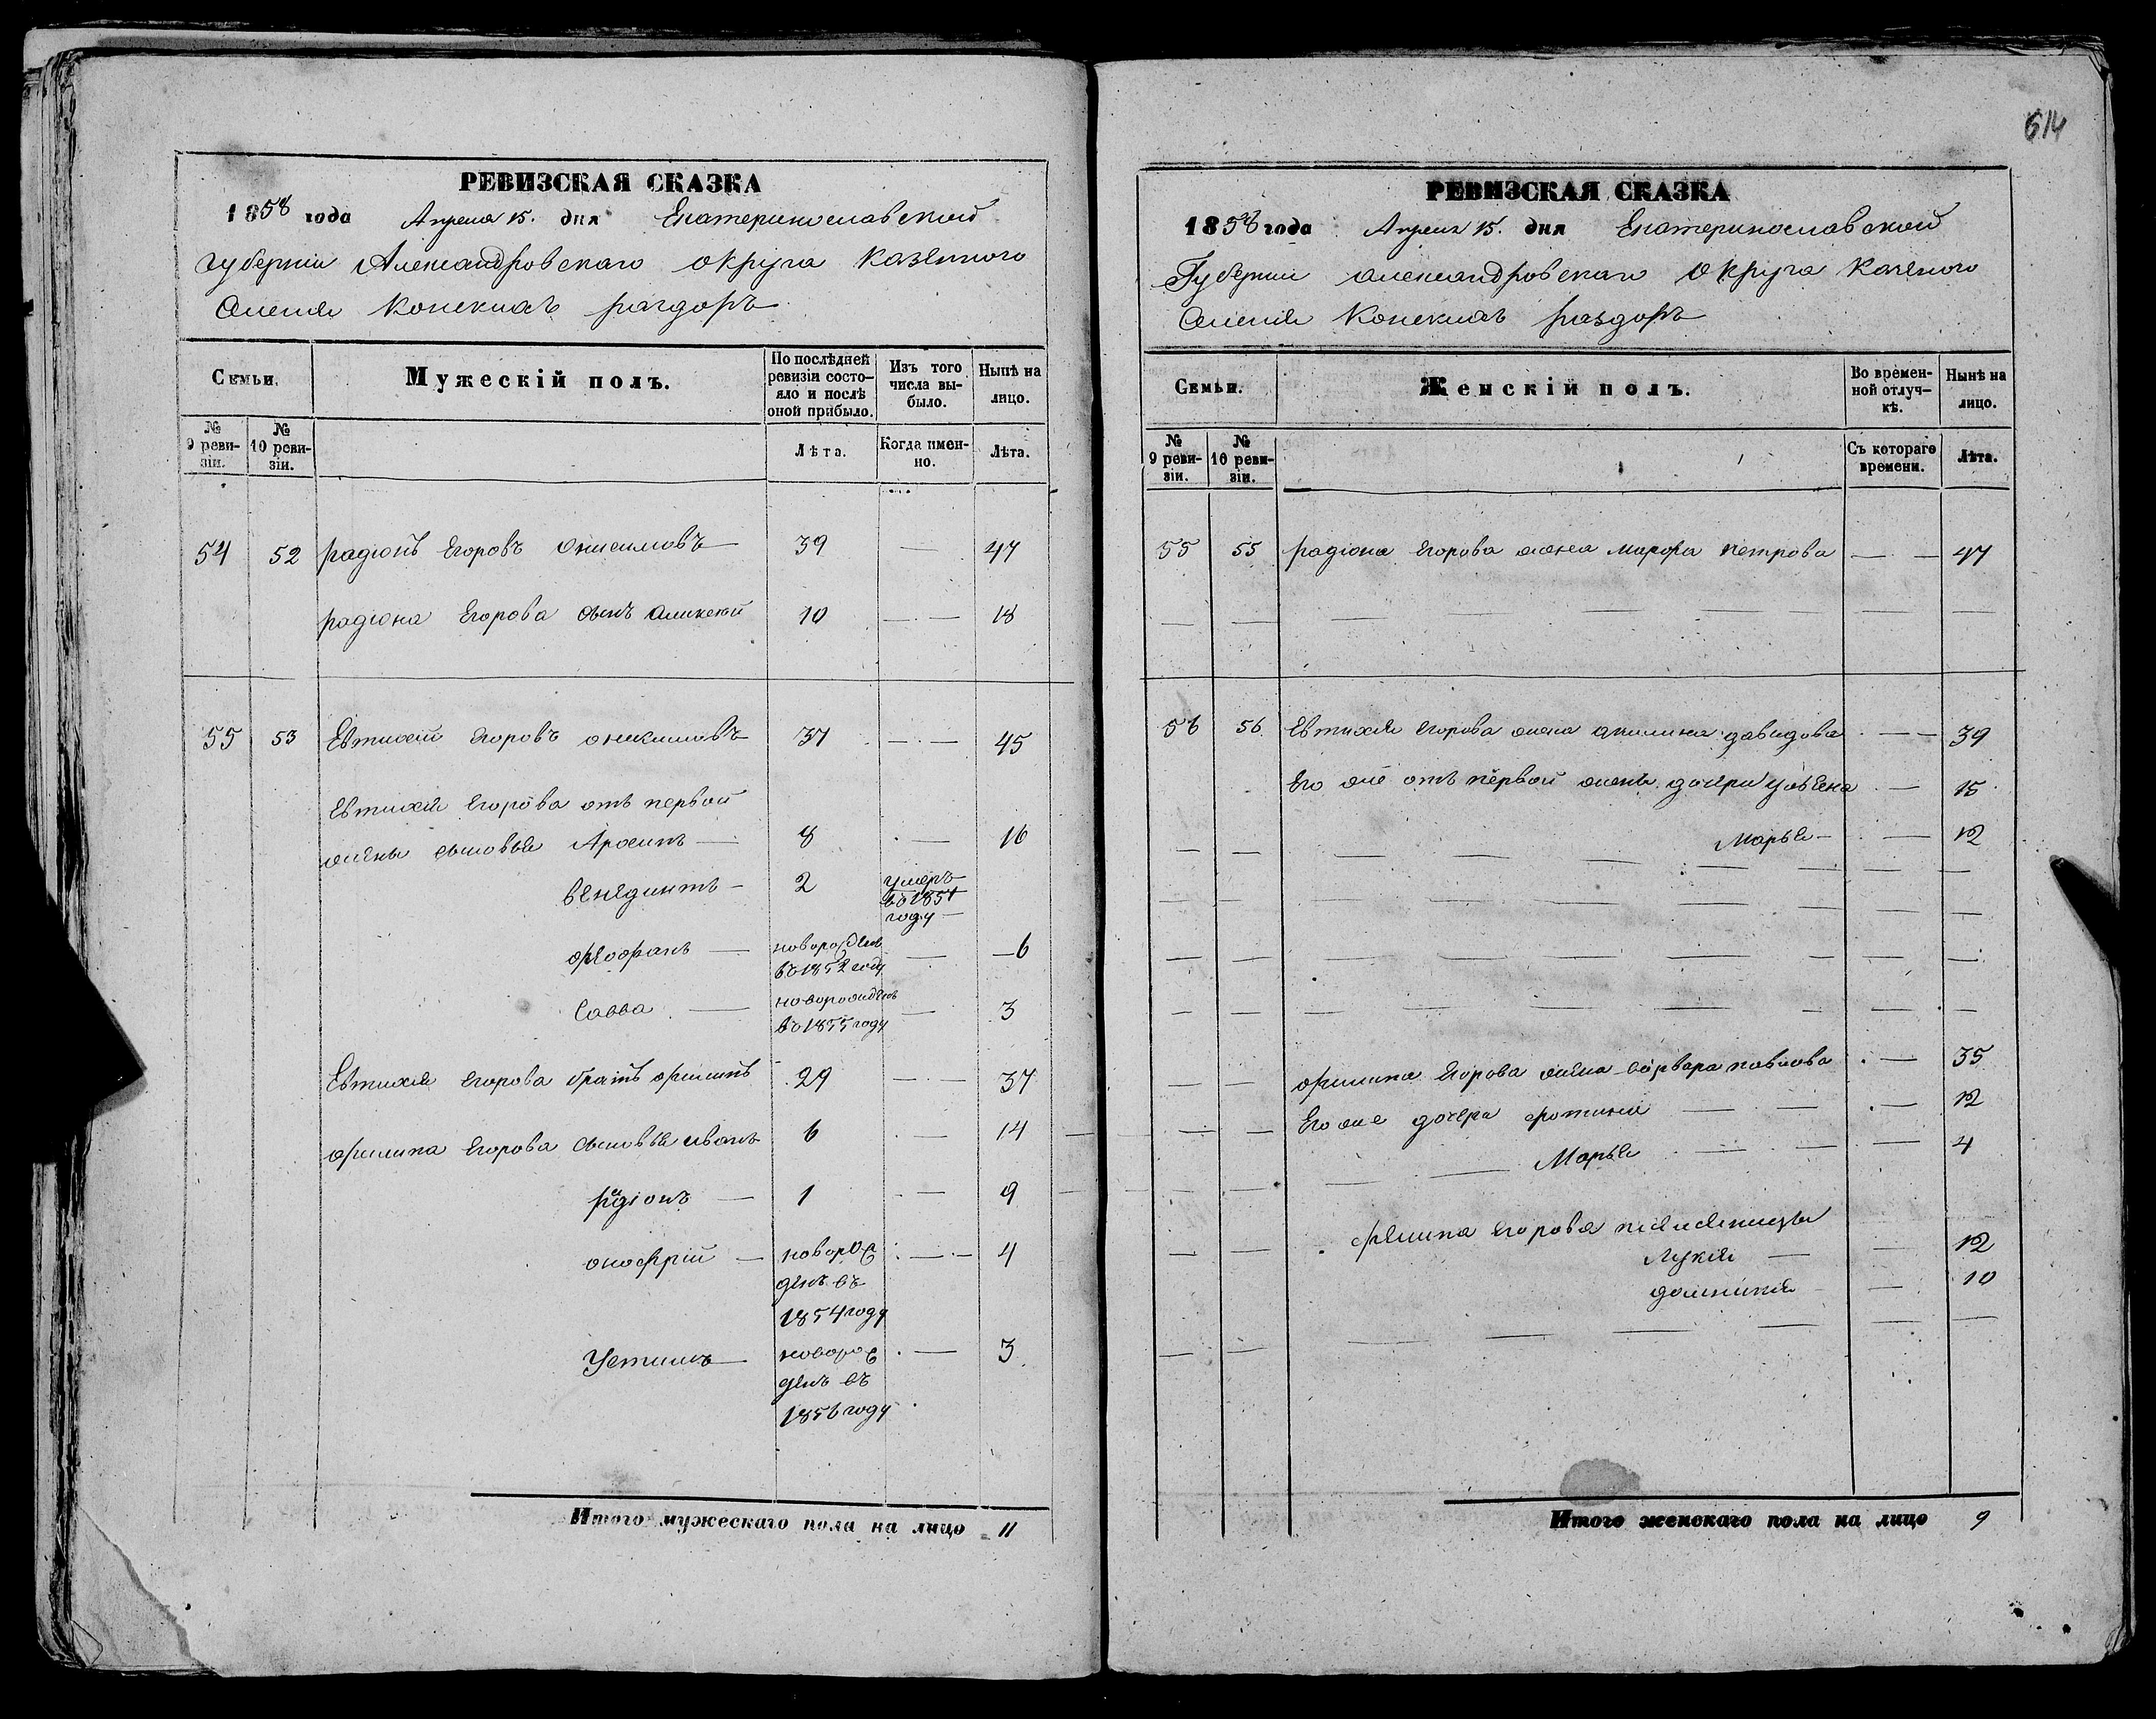 614
РЕВИЗСКАЯ СКАЗКА
1858 года Апреля 15. дня Екатеринославской
губернiи Александровскаго округа казенного
селенiя Конскихъ раздоръ
Семьи.
Мужескiй полъ.
По послѣдней ревизiи состо-
яло и послѣ оной прибыло.
Изъ того числа вы-
было.
Нынѣ на лицо.
№ 9 реви-
зiи.
№ 10 реви-
зiи.
Лѣта.
Когда имен-
но.
Лѣта.
54 52 радiонъ Егоровъ Онисимовъ — 39 — 47
радiона Егорова сынъ Аликсей 10 — — 18
55 53 Евтихiй Егоровъ онисимовъ 37 — — 45
Евтихiя Егорова отъ первой
жены сыновья Арсенъ — 8 — 16
венядиктъ — 2 умеръ
во 1851
году —
феофанъ — новорожден
во 1852 году — 6
Савва — новорожденъ
во 1855 году — 3
Евтихiя Егорова братъ филипъ 29 — — 37
филипа Егорова сыновья иванъ 6 — 14
радiонъ — 1 — 9
онофрiй — новорож
денъ въ
1854 году — — 4
Устимъ — новорож
денъ въ
1856 году — 3
Итого мужескаго пола на лицо 11
РЕВИЗСКАЯ СКАЗКА
1858 года Апреля 15. дня Екатеринославской
Губернiи александровскаго округа казеного
селенiя Конскихъ раздоръ
Семьи.
Женскiй полъ.
Во времен-
ной отлуч-
кѣ.
Нынѣ на лицо.
№ 9 реви-
зiи.
№ 10 реви-
зiи.
Съ котораго времени.
Лѣта.
55 55 радiона Егорова жена марфа петрова — — 47
56 56. Евтихiя Егорова жена акилина давидова — — 39
Его же отъ первой жены дочери — 15
Марья — — 12
филипа Егорова жена варвара павлова — 35
Его же дочери фотинiя — — — 12
Марья — — — 4
филипа Егорова племяницы
Лукiя — — 12
домникiя — 10
Итого женскаго пола на лицо 9